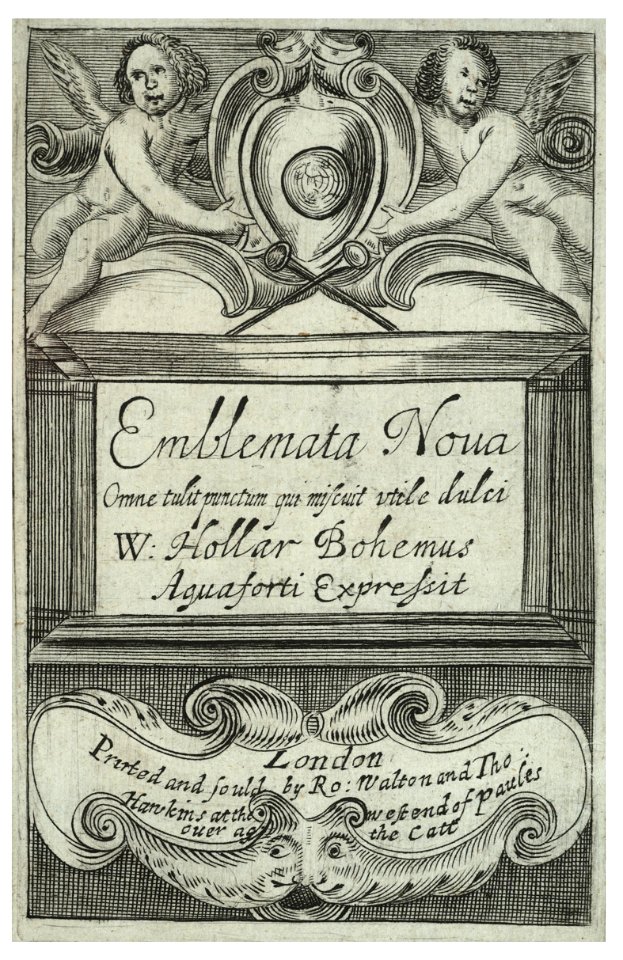 Emblemata Noua
Omne tulit punctum qui miscuit vtile dulci
W: Hollar Bohemus
Aquaforti Expressit
London
Printed and sould by Ro: Walton and Tho:
Hawkins at the west end of Paules
ouer ag the Catt